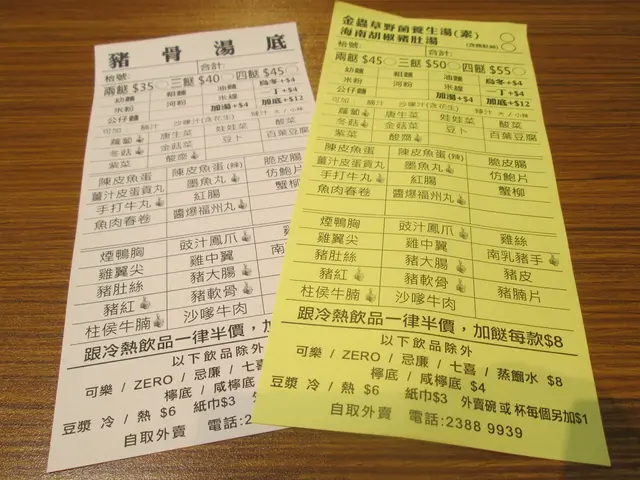 豬骨湯底
枱號: 合計:
兩餸 $35 三餸 $40 四餸 $45
幼麵 粗麵 油麵 烏冬+$4
米粉 河粉 米線 一丁+$4
公仔麵 加湯+$4 加底+$12
可加 腩汁 沙嗲汁(含花生) 辣汁 大/小辣
蘿蔔 唐生菜 娃娃菜 酸菜
冬菇 金菇菜 豆卜 百葉豆腐
紫菜 酸齋
陳皮魚蛋 陳皮魚蛋(辣) 脆皮腸
薑汁皮蛋貢丸 墨魚丸 仿鮑片
手打牛丸 紅腸 蟹柳
魚肉春卷 醬爆福州丸
煙鴨胸 豉汁鳳爪 雞
雞翼尖 雞中翼 南
豬肚絲 豬大腸
豬紅 豬軟骨
柱侯牛腩 沙嗲牛肉
跟冷熱飲品一律半價，加
以下飲品除外
可樂 / ZERO / 忌廉 / 七
檸底 / 咸檸底
豆漿 冷 / 熱 $6 紙巾$3 外
自取外賣 電話:2
金蟲草野菌養生湯(素)
海南胡椒豬肚湯
枱號: 合計:
兩餸 $45 三餸 $50 四餸 $55
幼麵 粗麵 油麵 烏冬+$4
米粉 河粉 米線 一丁+$4
公仔麵 加湯+$4 加底+$12
可加 腩汁 沙嗲汁(含花生) 辣汁 大/小辣
蘿蔔 唐生菜 娃娃菜 酸菜
冬菇 金菇菜 豆卜 百葉豆腐
紫菜 酸齋
陳皮魚蛋 陳皮魚蛋(辣) 脆皮腸
薑汁皮蛋貢丸 墨魚丸 仿鮑片
手打牛丸 紅腸 蟹柳
魚肉春卷 醬爆福州丸
煙鴨胸 豉汁鳳爪 雞絲
雞翼尖 雞中翼 南乳豬手
豬肚絲 豬大腸 豬皮
豬紅 豬軟骨 豬腩片
柱侯牛腩 沙嗲牛肉
跟冷熱飲品一律半價，加餸每款$8
以下飲品除外
可樂 / ZERO / 忌廉 / 七喜 / 蒸餾水 $8
檸底 / 咸檸底 $4
豆漿 冷 / 熱 $6 紙巾$3 外賣碗或杯每個另加$1
自取外賣 電話:2388 9939